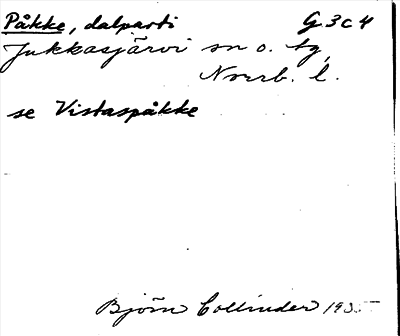 Påkke, dalparti G 3 c 4
Jukkasjärvi sn o. tg
Norrb. l.
se Vistaspåkke
Björn Collinder 1935